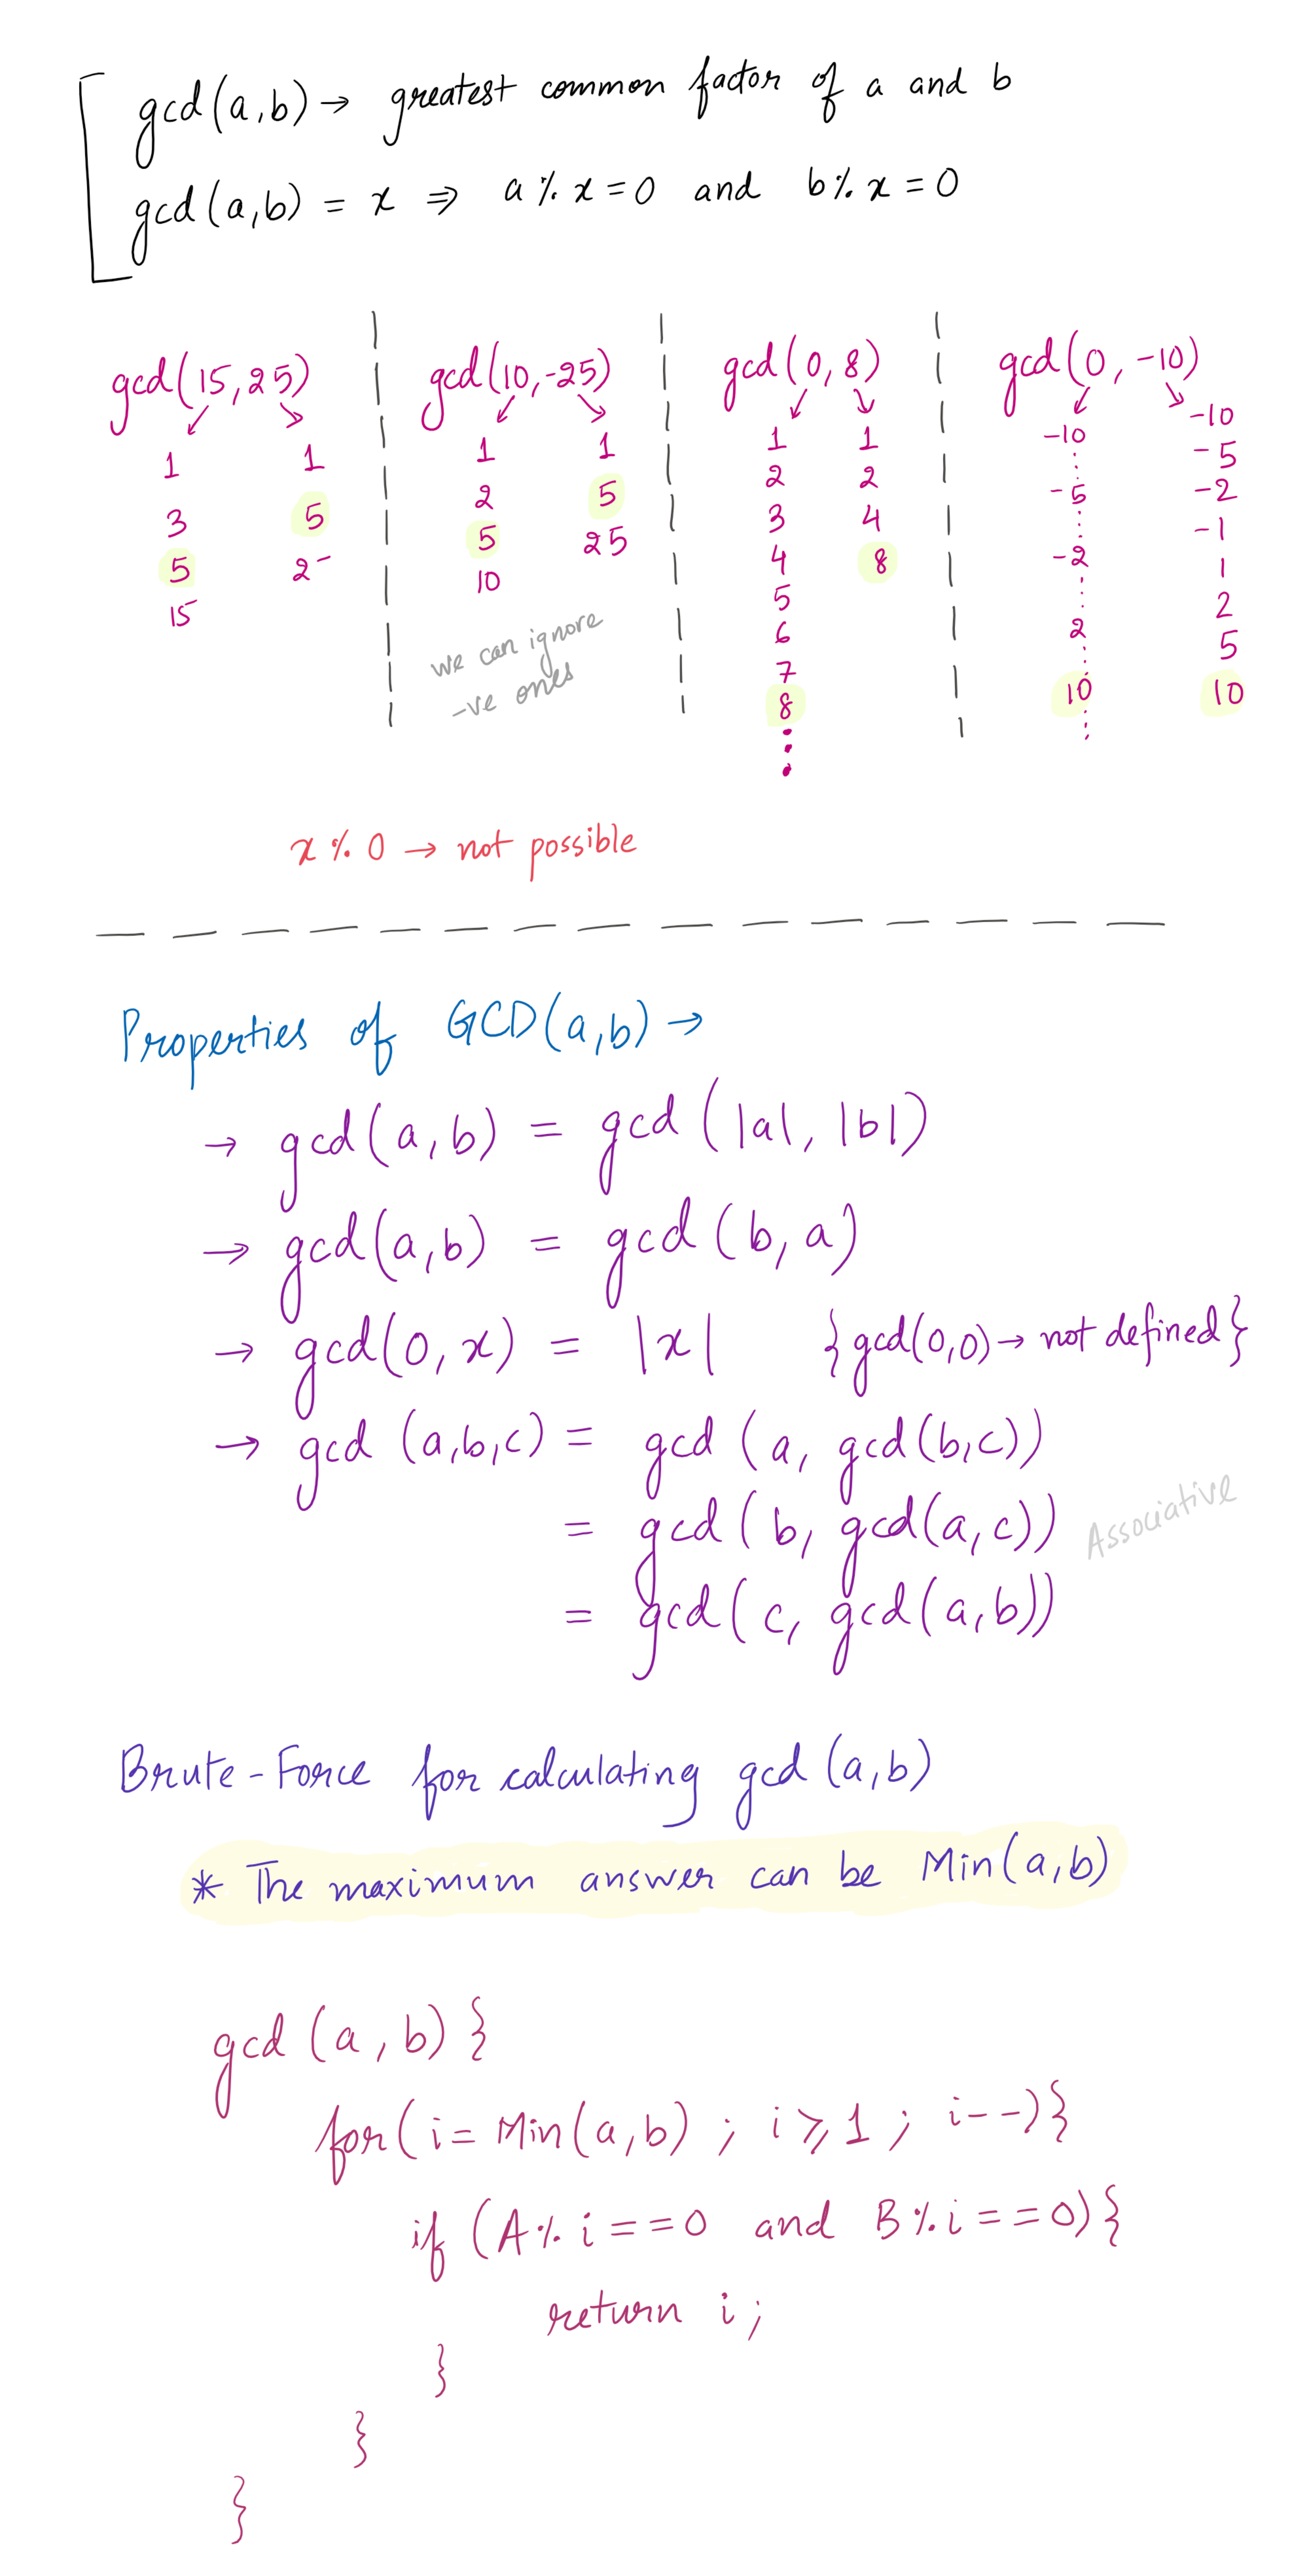 gcd(a,b) → greatest common factor of a and b
gcd(a,b) = x ⇒ a % x = 0 and b % x = 0
gcd(15,25)
1 1
3 5
5 2-
15
gcd(10,-25)
1 1
2 5
5 25
10
we can ignore
-ve ones
gcd(0,8)
1 1
2 2
3 4
4 8
5
6
7
8
gcd(0,-10)
-10 -10
-5 -5
-2 -2
2 -1
10 1
2
5
10
x % 0 → not possible
Properties of GCD(a,b) →
→ gcd(a,b) = gcd(|a|, |b|)
→ gcd(a,b) = gcd(b, a)
→ gcd(0, x) = |x| {gcd(0,0) → not defined}
→ gcd (a,b,c) = gcd (a, gcd(b,c))
= gcd(b, gcd(a,c)) Associative
= gcd(c, gcd(a,b))
Brute-Force for calculating gcd (a,b)
* The maximum answer can be Min(a,b)
gcd (a,b) {
for(i= Min(a,b) ; i ⩾ 1 ; i--){
if (A % i == 0 and B % i == 0){
return i;
}
}
}